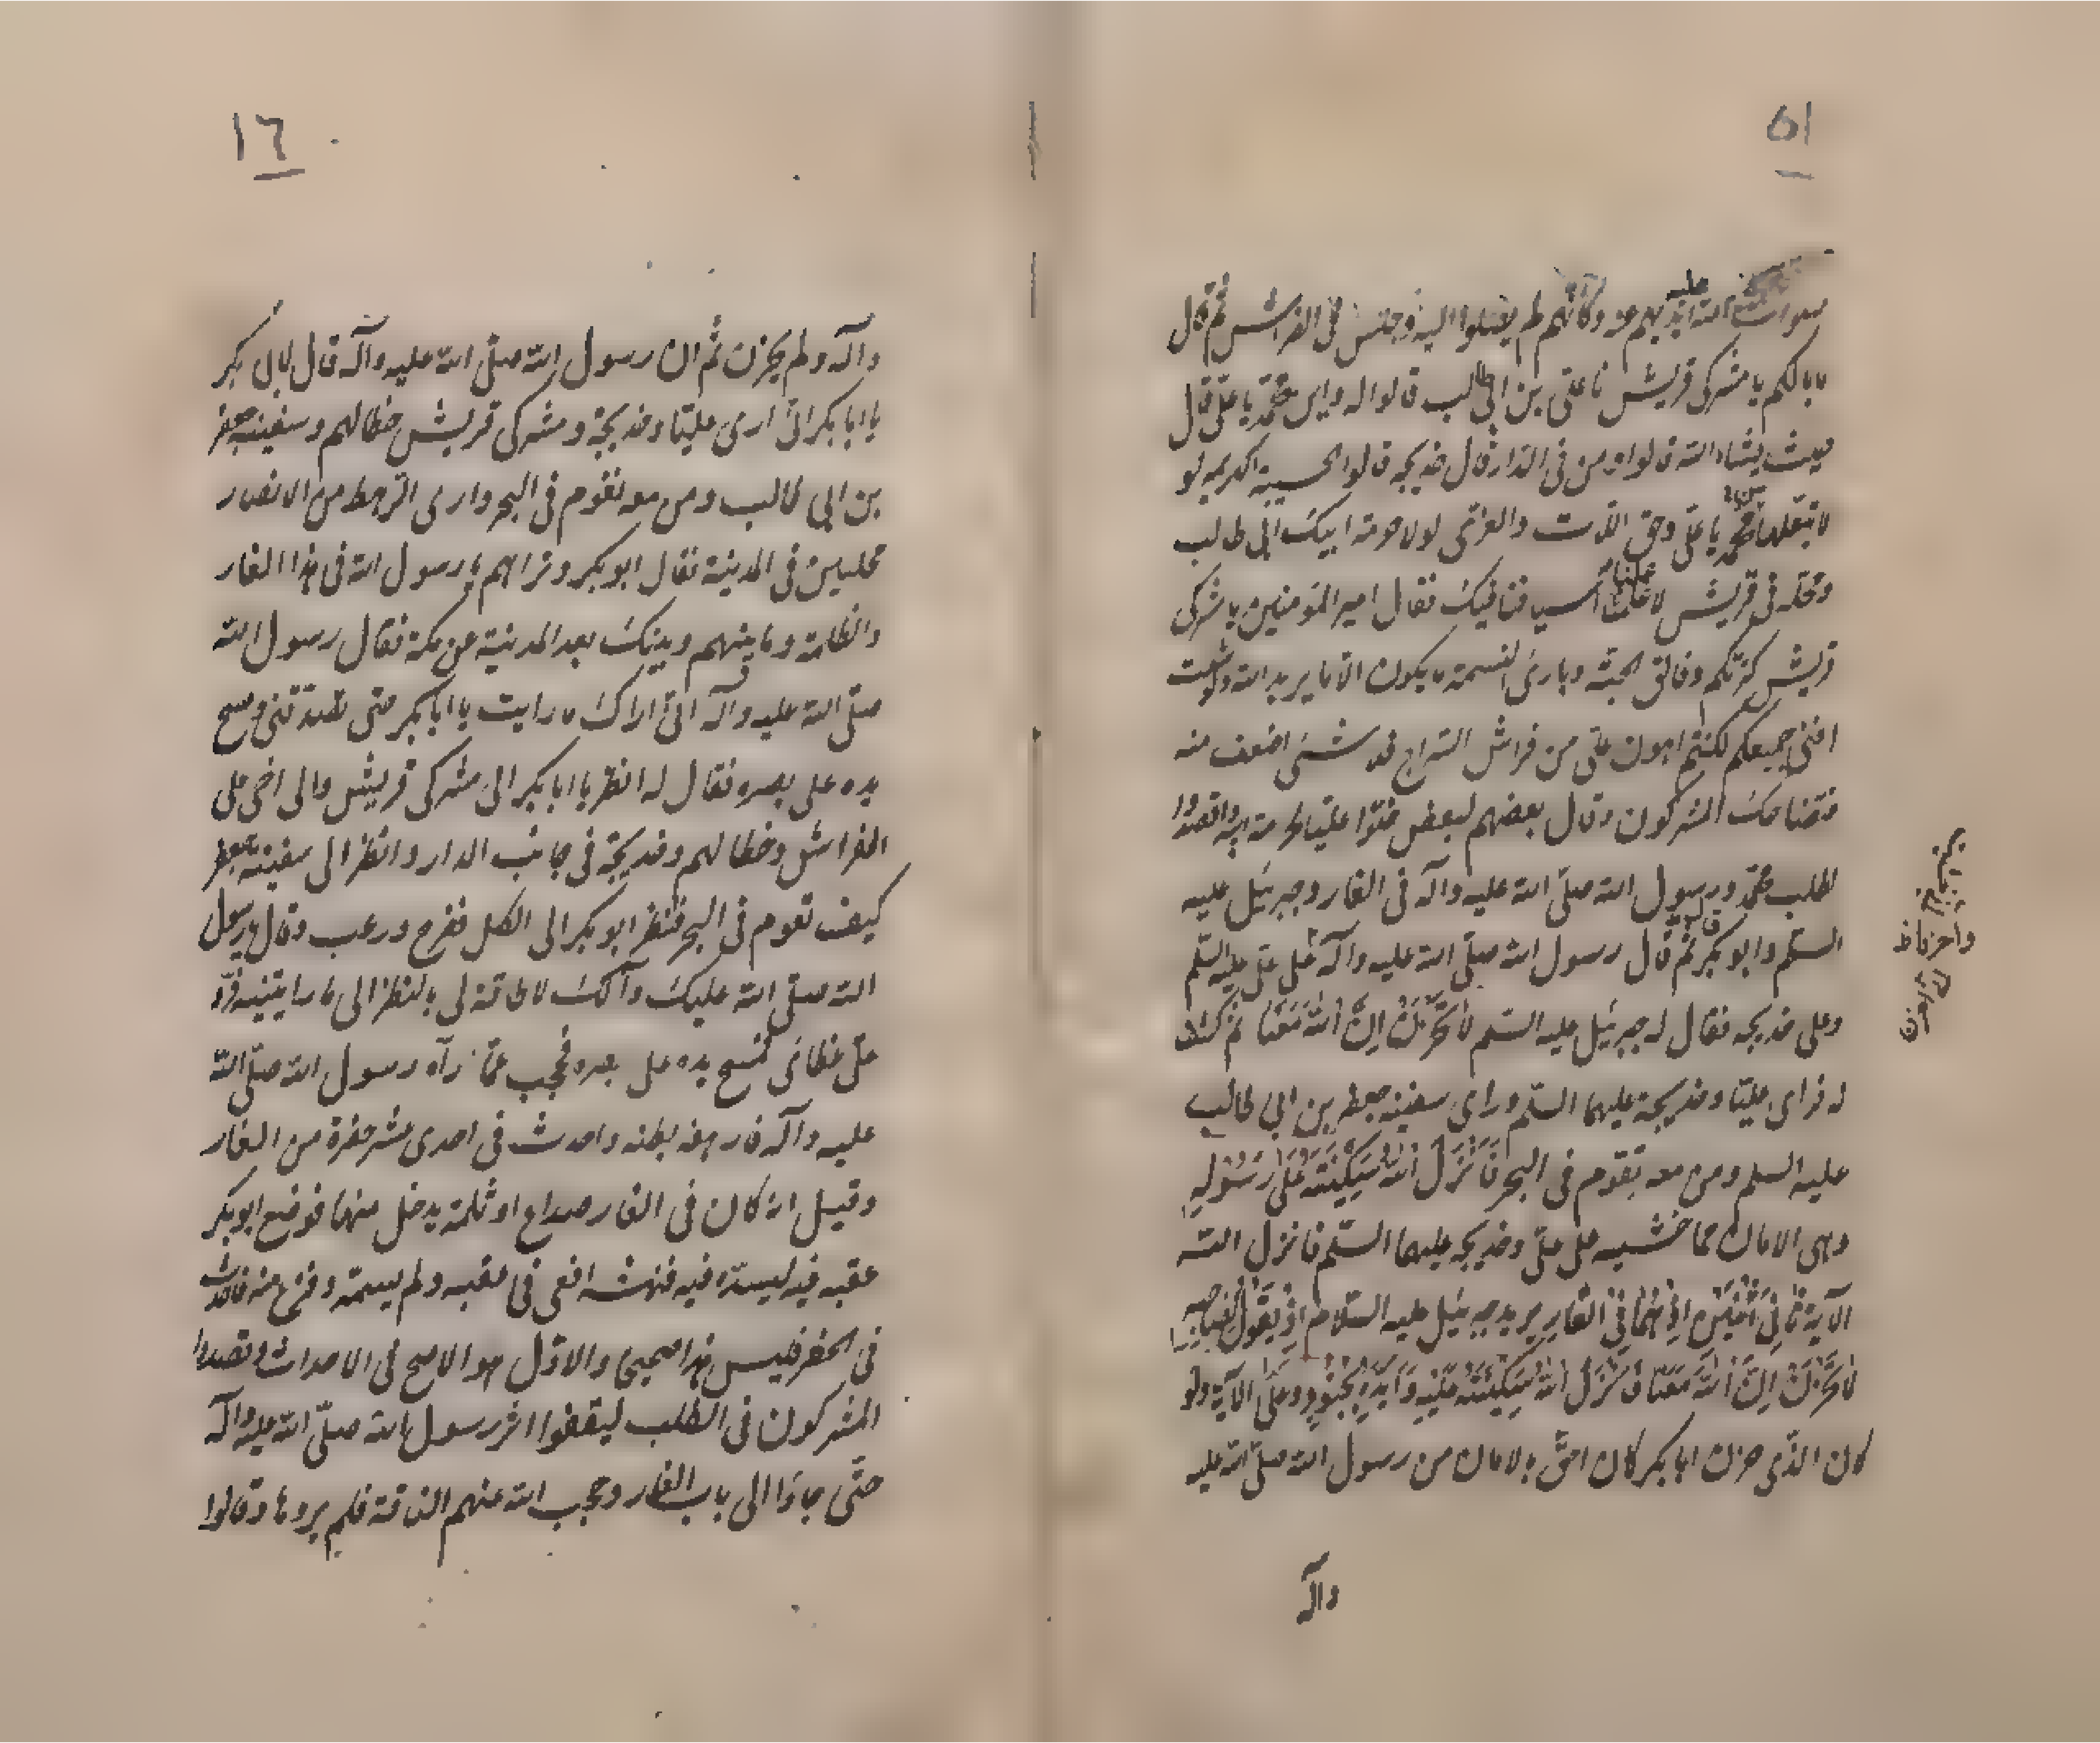 ١٥
صلوات الله عليه ايديهم عنه وكانهم لم يصلوا اليه وجلس في الفراش ثم قال
ما بالكم يا مشركي قريش انا علي بن ابي طالب قالوا له واين محمد يا علي قال
حيث يشاء الله قالوا ومن في الدار قال خديجة قالوا الحسيبة الكريمة لو
لا تبعلها بمحمد يا علي وحق اللات والعزى لولا حرمة ابيك ابي طالب
ومحله في قريش لاعملنا اسيافنا فيك فقال امير المؤمنين يا مشركي
قريش كثرتكم وفالق الحبة وبارئ النسمة ما يكون الا ما يريد الله ولو شئت
افني جميعكم لكنتم اهون علي من فراش السراج فلا شئ اضعف منه
فتضاحك المشركون وقال بعضهم لبعض خلوا عليا لحرمة ابيه واقصدوا
لطلب محمد ورسول الله صلى الله عليه وآله في الغار وجبرئيل عليه
السلم وابو بكر ثم قال رسول الله صلى الله عليه وآله على علي عليه السلم
وعلى خديجه فقال له جبرئيل عليه السلم لا تحزن ان الله معنا ثم كشف
له فرأى عليا وخديجة عليهما السلم وراى سفينه جعفر بن ابي طالب
عليه السلم ومن معه تقوم في البحر فانزل الله سكينته على رسوله
وهي الامان مما خشيه على علي وخديجه عليهما السلم فانزل الله
الآية ثاني اثنين اذ هما في الغار يريد جبرئيل عليه السلام اذ يقول لصاحبه
لا تحزن ان الله معنا فانزل الله سكينته عليه وايده بجنود وعلى الآية ولو
كان الذي حزن ابا بكر كان احق بالامان من رسول الله صلى الله عليه
وآله
١٦
وآله ولم يحزن ثم ان رسول الله صلى الله عليه وآله قال لابي بكر
يا ابا بكر اني ارى عليا وخديجة ومشركي قريش خطابهم وسفينة جعفر
بن ابي طالب ومن معه تقوم في البحر وارى الرهط من الانصار
مجلبين في المدينة فقال ابو بكر وتراهم يا رسول الله في هذا الغار
والظلمة وما بينهم وبينك بعد المدينة عن مكة فقال رسول الله
صلى الله عليه وآله اني اراك ما رايت يا ابا بكر حتى تصدقني ومسح
يده على بصره فقال له انظر يا ابا بكر الى مشركي قريش والى اخي على
الفراش وخطابهم وخديجة في جانب الدار وانظر الى سفينة جعفر
كيف تعوم في البحر فنظر ابو بكر الى الكل ففزع ورعب وقال يا رسول
الله صلى الله عليك وآلك لا طاقة لي بالنظر الى ما رايتنيه فرد
علي غطائي فمسح يده على بصره فحجب عما رآه رسول الله صلى الله
عليه وآله بطنه واحدث في احدى عشر حفرة من الغار
وقيل انه كان في الغار صداع او ثلمة يدخل منها فوضع ابو بكر
عقبه فيه ليسده فيه فنهشه افعى في عقبه ولم يسمه وفزع منه فاحدث
في الحفر فليس هذا صحيح والاول هو الاصح في الاحداث وقصدوا
المشركون في الطلب ليقفوا اثر رسول الله صلى الله عليه وآله
حتى جاؤا الى باب الغار وحجب الله عنهم الناقة فلم يروها وقالوا